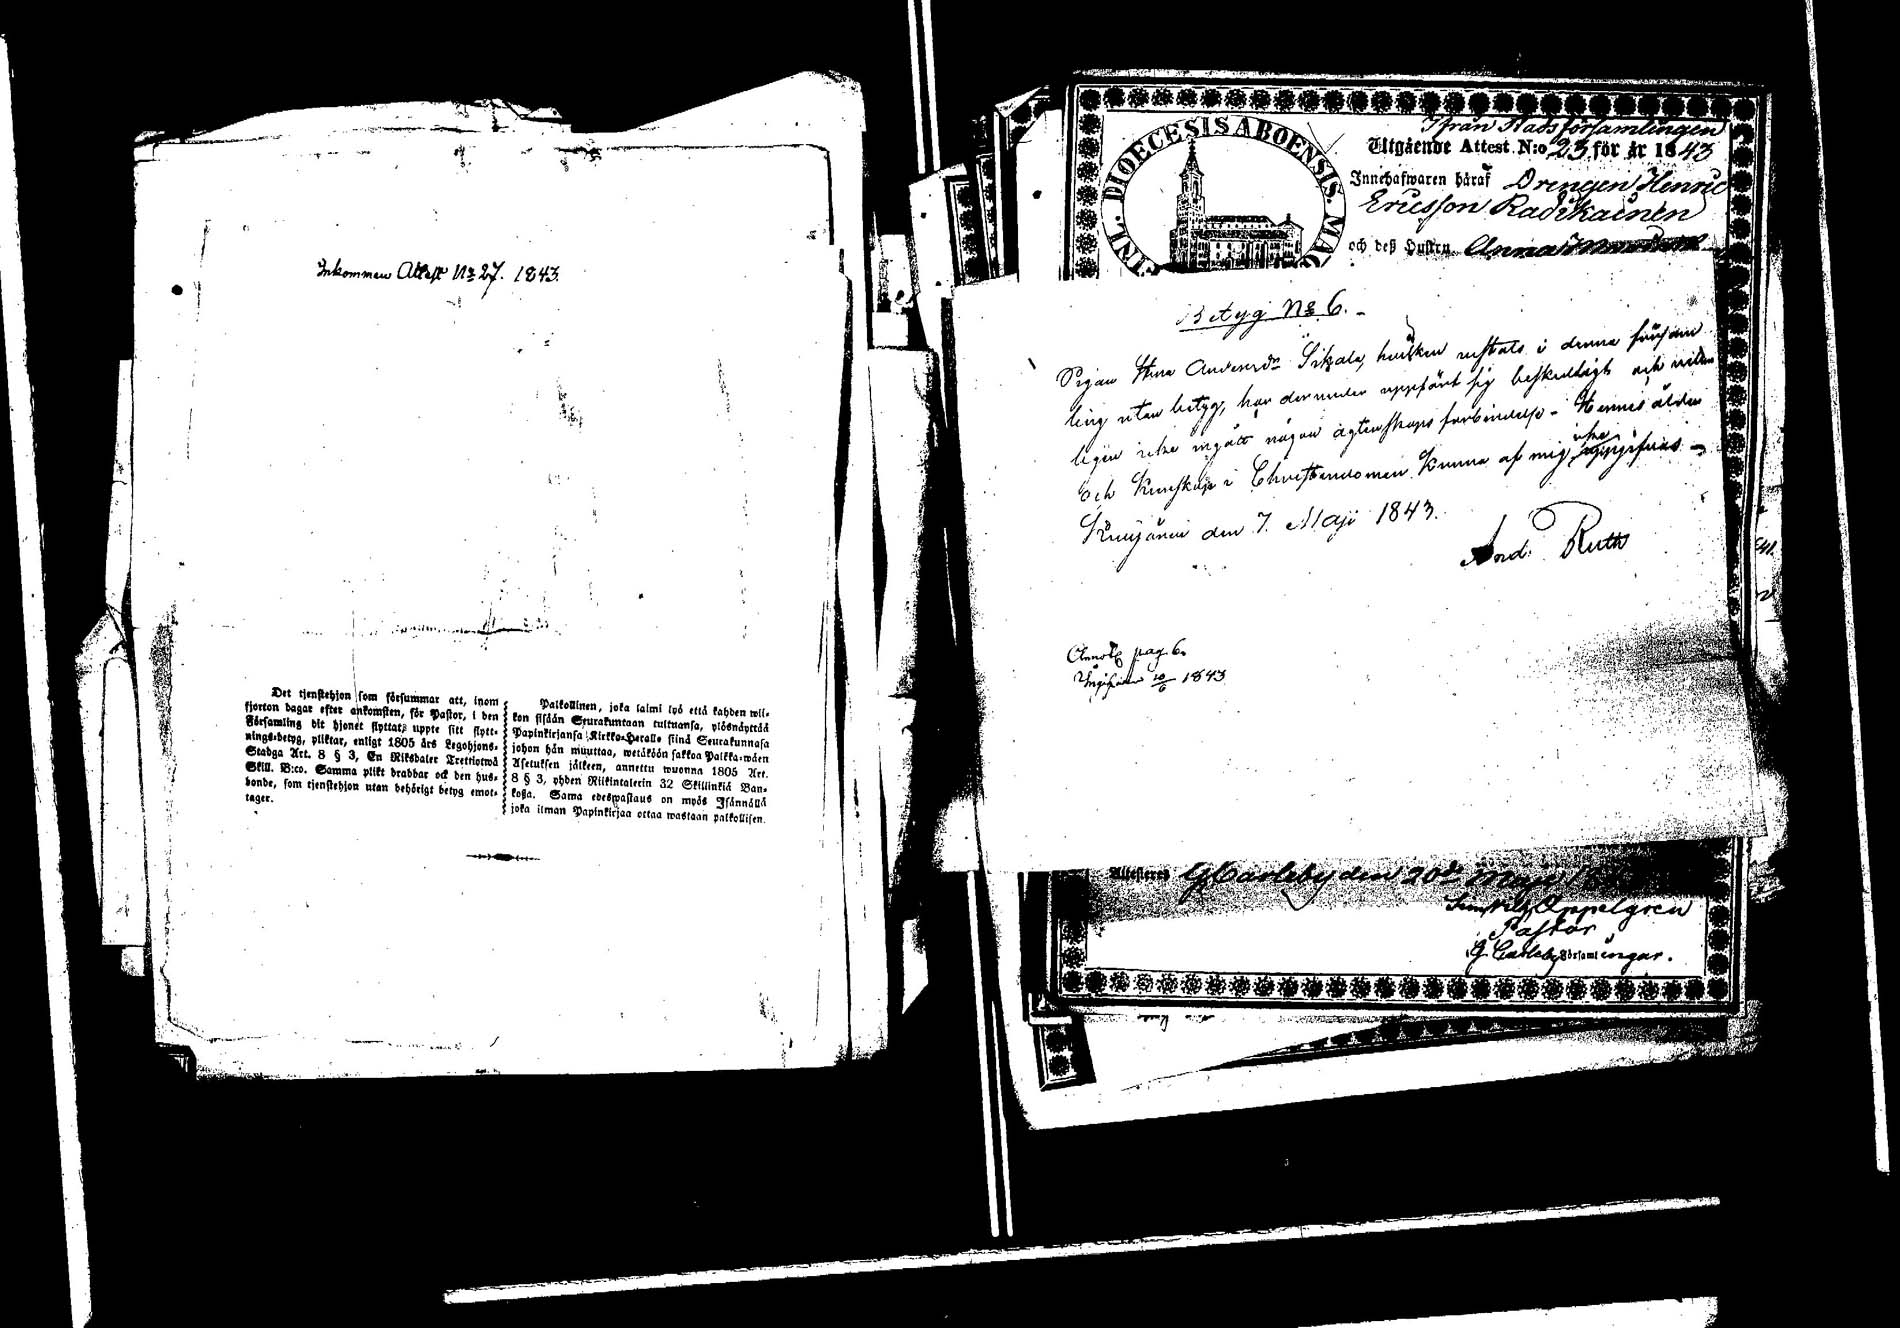 Inkommen Attest No 27. 1843.
Det tjenstehjon som försummar att, inom
fjorton dagar efter ankomsten, för Pastor, i den
Församling dit hjonet flyttat, uppte sitt flytt-
nings-betyg, pliktar, enligt 1805 års Legohjons-
Stadga Art. 8 § 3, En Riksdaler Trettiotwå
Skill. B:co. Samma plikt drabbar ock den hus-
bonde, som tjenstehjon utan behörigt betyg emot-
tager.
Palkollinen, joka laimi lyö että kahden wii-
kon sisään Seurakuntaan tultuansa, ylösnäyttää
Papinkirjansa Kirkko-Herralle siinä Seurakunnasa
johon hän muuttaa, wetäköön sakkoa Palkka-wäen
Asetuksen jälkeen, annettu wuonna 1805 Art.
8 § 3, yhden Riikintalerin 32 Skillinkiä Ban-
kosa. Sama edeswastaus on myös Isännällä
joka ilman Papinkirjaa ottaa wastaan palkollisen.
DIOECESIS ABOENSIS.
Ifrån Stadsförsamlingen
Utgående Attest N:o 23 för år 1843
Innehafwaren häraf Drengen Henric
Ericsson Radikainen
och deß Hustru Anna
Betyg No 6.
Pigan Stina Andersdr Sikala, hvilken vistats i denna försam
ling utan betyg, har derunder uppfört sig beskedligt och veter
ligen icke ingått någon ägtenskaps förbindelse - Hennes ålder
och Kunskap i Christendomen kunna af mig icke uppgifvas -
den 7. Maji 1843.
And. Ruth
Annot. pag. 6.
10/6 1843
Attesteras G Carleby den 20de Maji
Appelgren
Pastor
G. Carleby Församlingar.